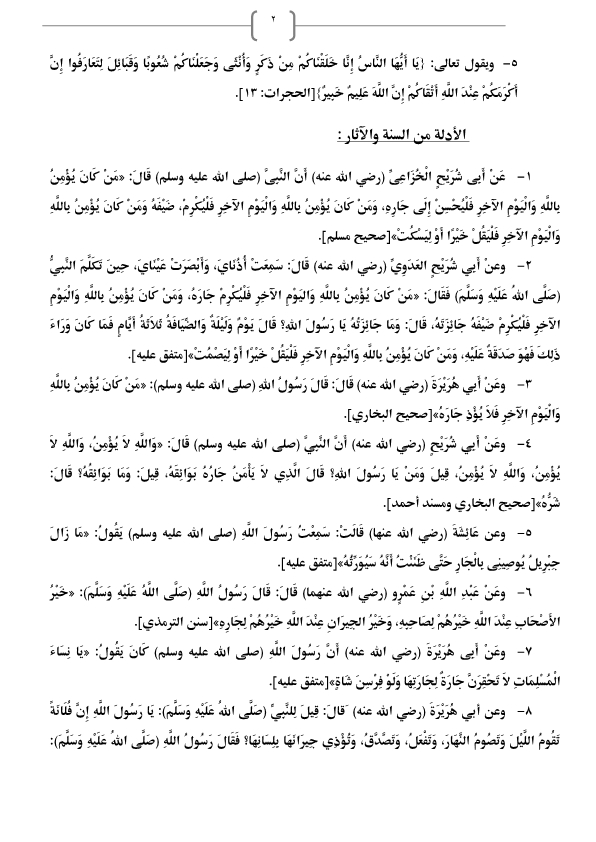 ٢
٥- ويقول تعالى: {يَا أَيُّهَا النَّاسُ إِنَّا خَلَقْنَاكُمْ مِنْ ذَكَرٍ وَأُنْثَى وَجَعَلْنَاكُمْ شُعُوبًا وَقَبَائِلَ لِتَعَارَفُوا إِنَّ
أَكْرَمَكُمْ عِنْدَ اللَّهِ أَتْقَاكُمْ إِنَّ اللَّهَ عَلِيمٌ خَبِيرٌ}[الحجرات: ١٣].
الأدلة من السنة والآثار:
١- عَنْ أَبِى شُرَيْحٍ الْخُزَاعِيِّ (رضي الله عنه) أَنَّ النَّبِيَّ (صلى الله عليه وسلم) قَالَ: «مَنْ كَانَ يُؤْمِنُ
بِاللَّهِ وَالْيَوْمِ الآخِرِ فَلْيُحْسِنْ إِلَى جَارِهِ، وَمَنْ كَانَ يُؤْمِنُ بِاللَّهِ وَالْيَوْمِ الآخِرِ فَلْيُكْرِمْ، ضَيْفَهُ وَمَنْ كَانَ يُؤْمِنُ بِاللَّهِ
وَالْيَوْمِ الآخِرِ فَلْيَقُلْ خَيْرًا أَوْ لِيَسْكُتْ»[صحيح مسلم].
٢- وعنْ أَبِي شُرَيْحٍ العَدَوِيِّ (رضي الله عنه) قَالَ: سَمِعَتْ أُذُنَايَ، وَأَبْصَرَتْ عَيْنَايَ، حِينَ تَكَلَّمَ النَّبِيُّ
(صَلَّى اللهُ عَلَيْهِ وَسَلَّمَ) فَقَالَ: «مَنْ كَانَ يُؤْمِنُ بِاللَّهِ وَاليَوْمِ الآخِرِ فَلْيُكْرِمْ جَارَهُ، وَمَنْ كَانَ يُؤْمِنُ بِاللَّهِ وَاليَوْمِ
الآخِرِ فَلْيُكْرِمْ ضَيْفَهُ جَائِزَتَهُ، قَالَ: وَمَا جَائِزَتُهُ يَا رَسُولَ اللهِ؟ قَالَ يَوْمٌ وَلَيْلَةٌ وَالضِّيَافَةُ ثَلاثَةُ أَيَّامٍ فَمَا كَانَ وَرَاءَ
ذَلِكَ فَهْوَ صَدَقَةٌ عَلَيْهِ، وَمَنْ كَانَ يُؤْمِنُ بِاللَّهِ وَالْيَوْمِ الآخِرِ فَلْيَقُلْ خَيْرًا أَوْ لِيَصْمُتْ»[متفق عليه].
٣- وعَنْ أَبِي هُرَيْرَةَ (رضي الله عنه) قَالَ: قَالَ رَسُولُ اللهِ (صلى الله عليه وسلم): «مَنْ كَانَ يُؤْمِنُ بِاللَّهِ
وَالْيَوْمِ الآخِرِ فَلاَ يُؤْذِ جَارَهُ»[صحيح البخاري].
٤- وعَنْ أَبِي شُرَيْحٍ (رضي الله عنه) أَنَّ النَّبِيَّ (صلى الله عليه وسلم) قَالَ: «وَاللَّهِ لاَ يُؤْمِنُ، وَاللَّهِ لاَ
يُؤْمِنُ، وَاللَّهِ لاَ يُؤْمِنُ، قِيلَ وَمَنْ يَا رَسُولَ اللهِ؟ قَالَ الَّذِي لاَ يَأْمَنُ جَارُهُ بَوَائِقَهُ، قِيلَ: وَمَا بَوَائِقُهُ؟ قَالَ:
شَرُّهُ»[صحيح البخاري ومسند أحمد].
٥- وعن عَائِشَةَ (رضي الله عنها) قَالَتْ: سَمِعْتُ رَسُولَ اللَّهِ (صلى الله عليه وسلم) يَقُولُ: «مَا زَالَ
جِبْرِيلُ يُوصِينِى بِالْجَارِ حَتَّى ظَنَنْتُ أَنَّهُ سَيُوَرِّثُهُ»[متفق عليه].
٦- وعَنْ عَبْدِ اللَّهِ بْنِ عَمْرٍو (رضي الله عنهما) قَالَ: قَالَ رَسُولُ اللَّهِ (صَلَّى اللَّهُ عَلَيْهِ وَسَلَّمَ): «خَيْرُ
الأَصْحَابِ عِنْدَ اللَّهِ خَيْرُهُمْ لِصَاحِبِهِ، وَخَيْرُ الجِيرَانِ عِنْدَ اللَّهِ خَيْرُهُمْ لِجَارِهِ»[سنن الترمذي].
٧- وعَنْ أَبِى هُرَيْرَةَ (رضي الله عنه) أَنَّ رَسُولَ اللَّهِ (صلى الله عليه وسلم) كَانَ يَقُولُ: «يَا نِسَاءَ
الْمُسْلِمَاتِ لاَ تَحْقِرَنَّ جَارَةٌ لِجَارَتِهَا وَلَوْ فِرْسِنَ شَاةٍ»[متفق عليه].
٨- وعن أبي هُرَيْرَةَ (رضي الله عنه) قَالَ: قِيلَ لِلنَّبِيِّ (صَلَّى اللهُ عَلَيْهِ وَسَلَّمَ): يَا رَسُولَ اللَّهِ إِنَّ فُلَانَةً
تَقُومُ اللَّيْلَ وَتَصُومُ النَّهَارَ، وَتَفْعَلُ، وَتَصَّدَّقُ، وَتُؤْذِي جِيرَانَهَا بِلِسَانِهَا؟ فَقَالَ رَسُولُ اللَّهِ (صَلَّى اللهُ عَلَيْهِ وَسَلَّمَ):